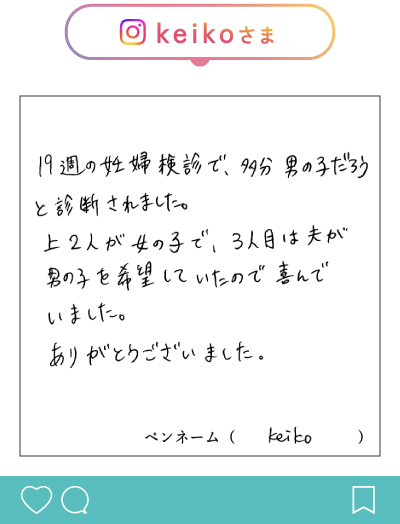 keikoさま
19週の妊婦検診で、多分男の子だろう
と診断されました。
上2人が女の子で、3人目は夫が
男の子を希望していたので喜んで
いました。
ありがとうございました。
ペンネーム（ keiko ）